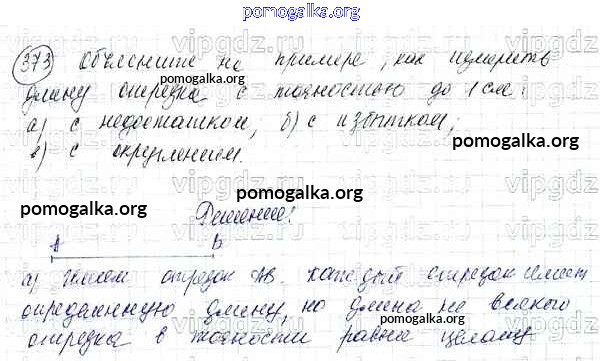 pomogalka.org
373 Объясните на примере, как измерить
pomogalka.org pomogalka.org
длину отрезка с точностью до 1 см:
а) с недостатком; б) с избытком;
в) с округлением.
pomogalka.org
pomogalka.org
pomogalka.org
Решение:
A B
а) Имеем отрезок AB. Каждый отрезок имеет
определенную длину, но длина не всякого
отрезка в точности равна целому
pomogalka.org